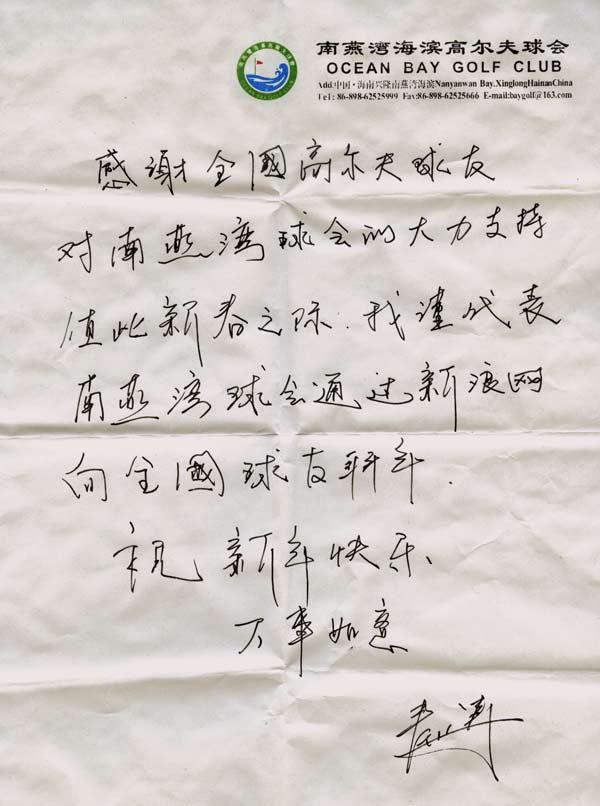 南燕湾海滨高尔夫球会
OCEAN BAY GOLF CLUB
Add:中国·海南兴隆南燕湾海滨Nanyanwan Bay.XinglongHainanChina
Tel: 86-898-62525999 Fax:86-898-62525666 E-mail:baygolf@163.com
感謝全國高尔夫球友
对南燕湾球会的大力支持
值此新春之际.我谨代表
南燕湾球会通过新浪网
向全國球友拜年.
祝新年快乐、
万事如意